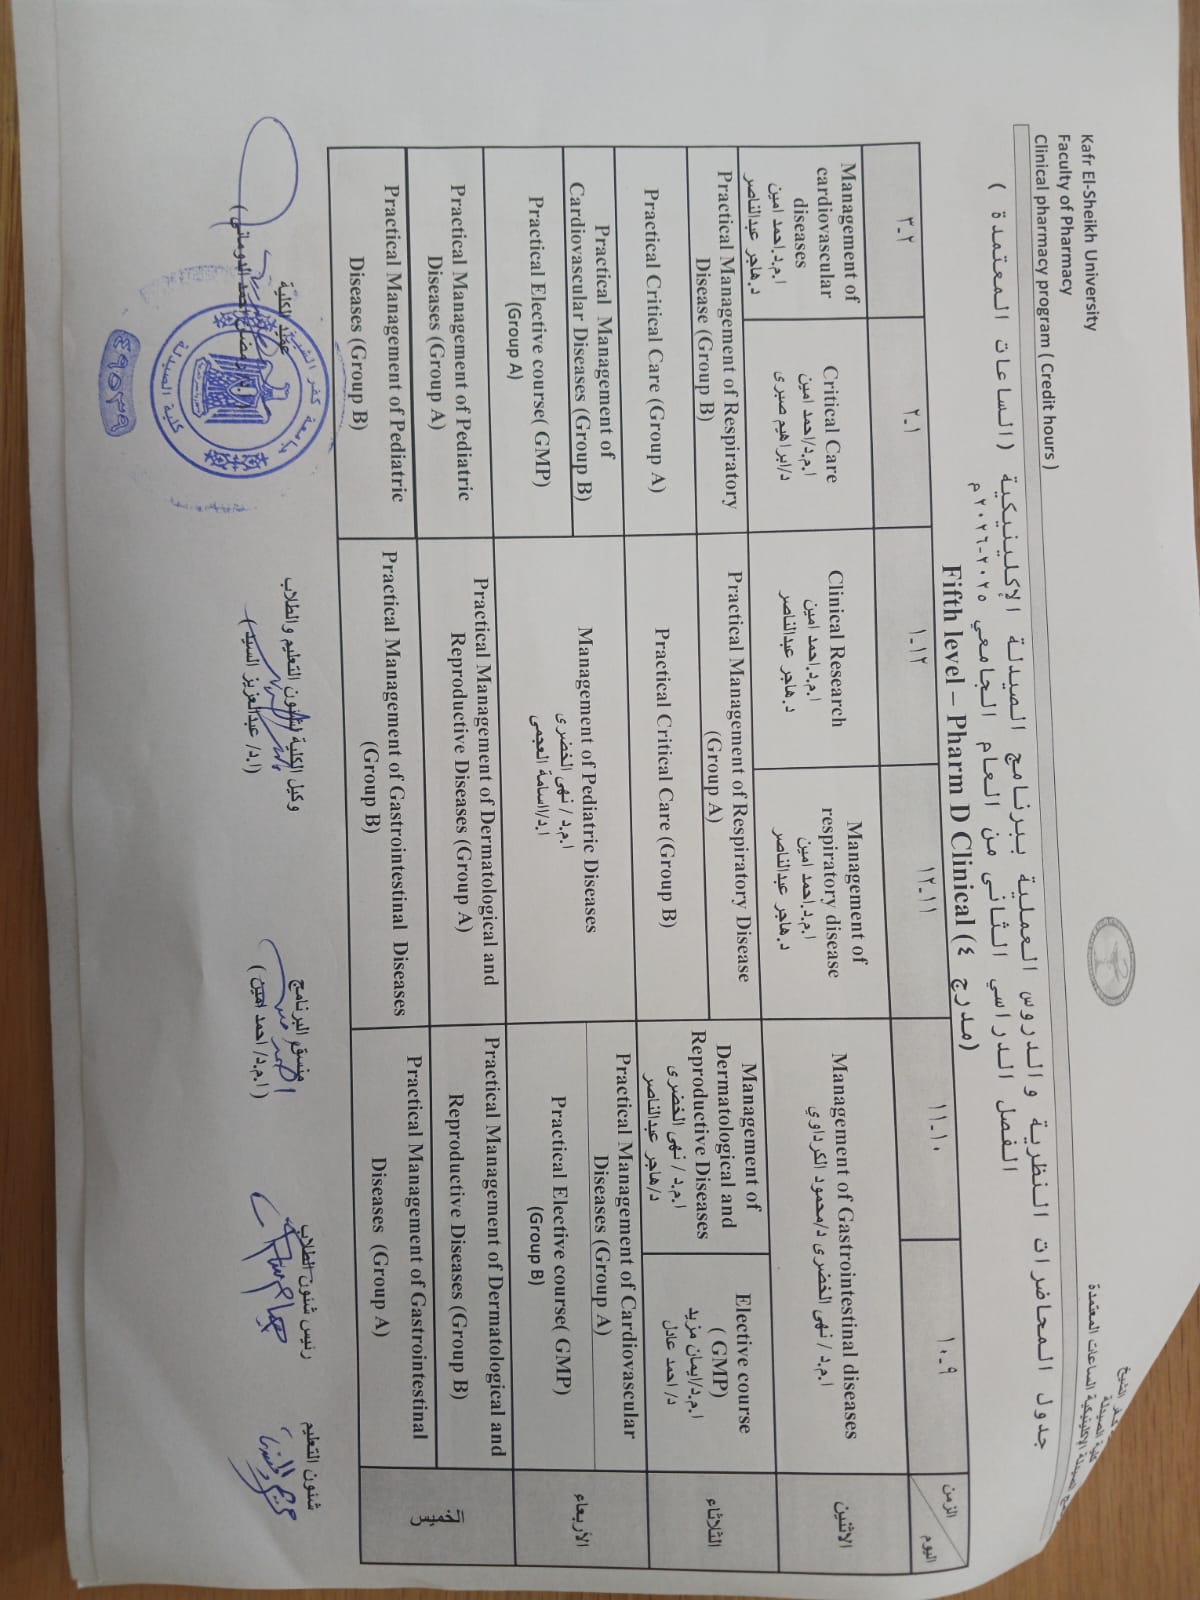 Kafr El-Sheikh University
Faculty of Pharmacy
Clinical pharmacy program ( Credit hours )
كلية الصيدلة
جدول المحاضرات النظرية و الدروس العملية ببرنامج الصيدلة الإكلينيكية (الساعات المعتمدة )
الفصل الدراسي الثانى من العام الجامعي ٢٠٢٥-٢٠٢٦م
Fifth level – Pharm D Clinical (مدرج ٤)
الزمن
اليوم
٩-١٠
١٠-١١
١١-١٢
١٢-١
١-٢
٢-٣
الاثنين
Management of Gastrointestinal diseases
ا.م.د / نهى الخضرى د/محمود الكرداوي
Management of
respiratory disease
ا.م.د.احمد امين
د.هاجر عبدالناصر
Clinical Research
ا.م.د.احمد امين
د.هاجر عبدالناصر
Critical Care
ا.م.د/احمد امين
د/ابراهيم صبرى
Management of
cardiovascular
diseases
ا.م.د.احمد امين
د.هاجر عبدالناصر
الثلاثاء
Elective course
( GMP)
ا.م.د/ايمان مزيد
د/ احمد عادل
Management of
Dermatological and
Reproductive Diseases
ا.م.د / نهى الخضرى
د/هاجر عبدالناصر
Practical Management of Respiratory Disease
(Group A)
Practical Management of Respiratory
Disease (Group B)
Practical Critical Care (Group B)
Practical Critical Care (Group A)
الأربعاء
Practical Management of Cardiovascular
Diseases (Group A)
Practical Elective course( GMP)
(Group B)
Management of Pediatric Diseases
ا.م.د / نهى الخضرى
ا.د/اسامة العجمى
Practical Management of
Cardiovascular Diseases (Group B)
Practical Elective course( GMP)
(Group A)
الخميس
Practical Management of Dermatological and
Reproductive Diseases (Group B)
Practical Management of Dermatological and
Reproductive Diseases (Group A)
Practical Management of Pediatric
Diseases (Group A)
Practical Management of Gastrointestinal
Diseases (Group A)
Practical Management of Gastrointestinal Diseases
(Group B)
Practical Management of Pediatric
Diseases (Group B)
شئون التعليم
رئيس شئون الطلاب
منسق البرنامج
(ا.م.د/ احمد امين )
وكيل الكلية لشئون التعليم والطلاب
(ا.د/ عبدالعزيز السيد )
عميد الكلية
جامعة كفر الشيخ
كلية الصيدلة